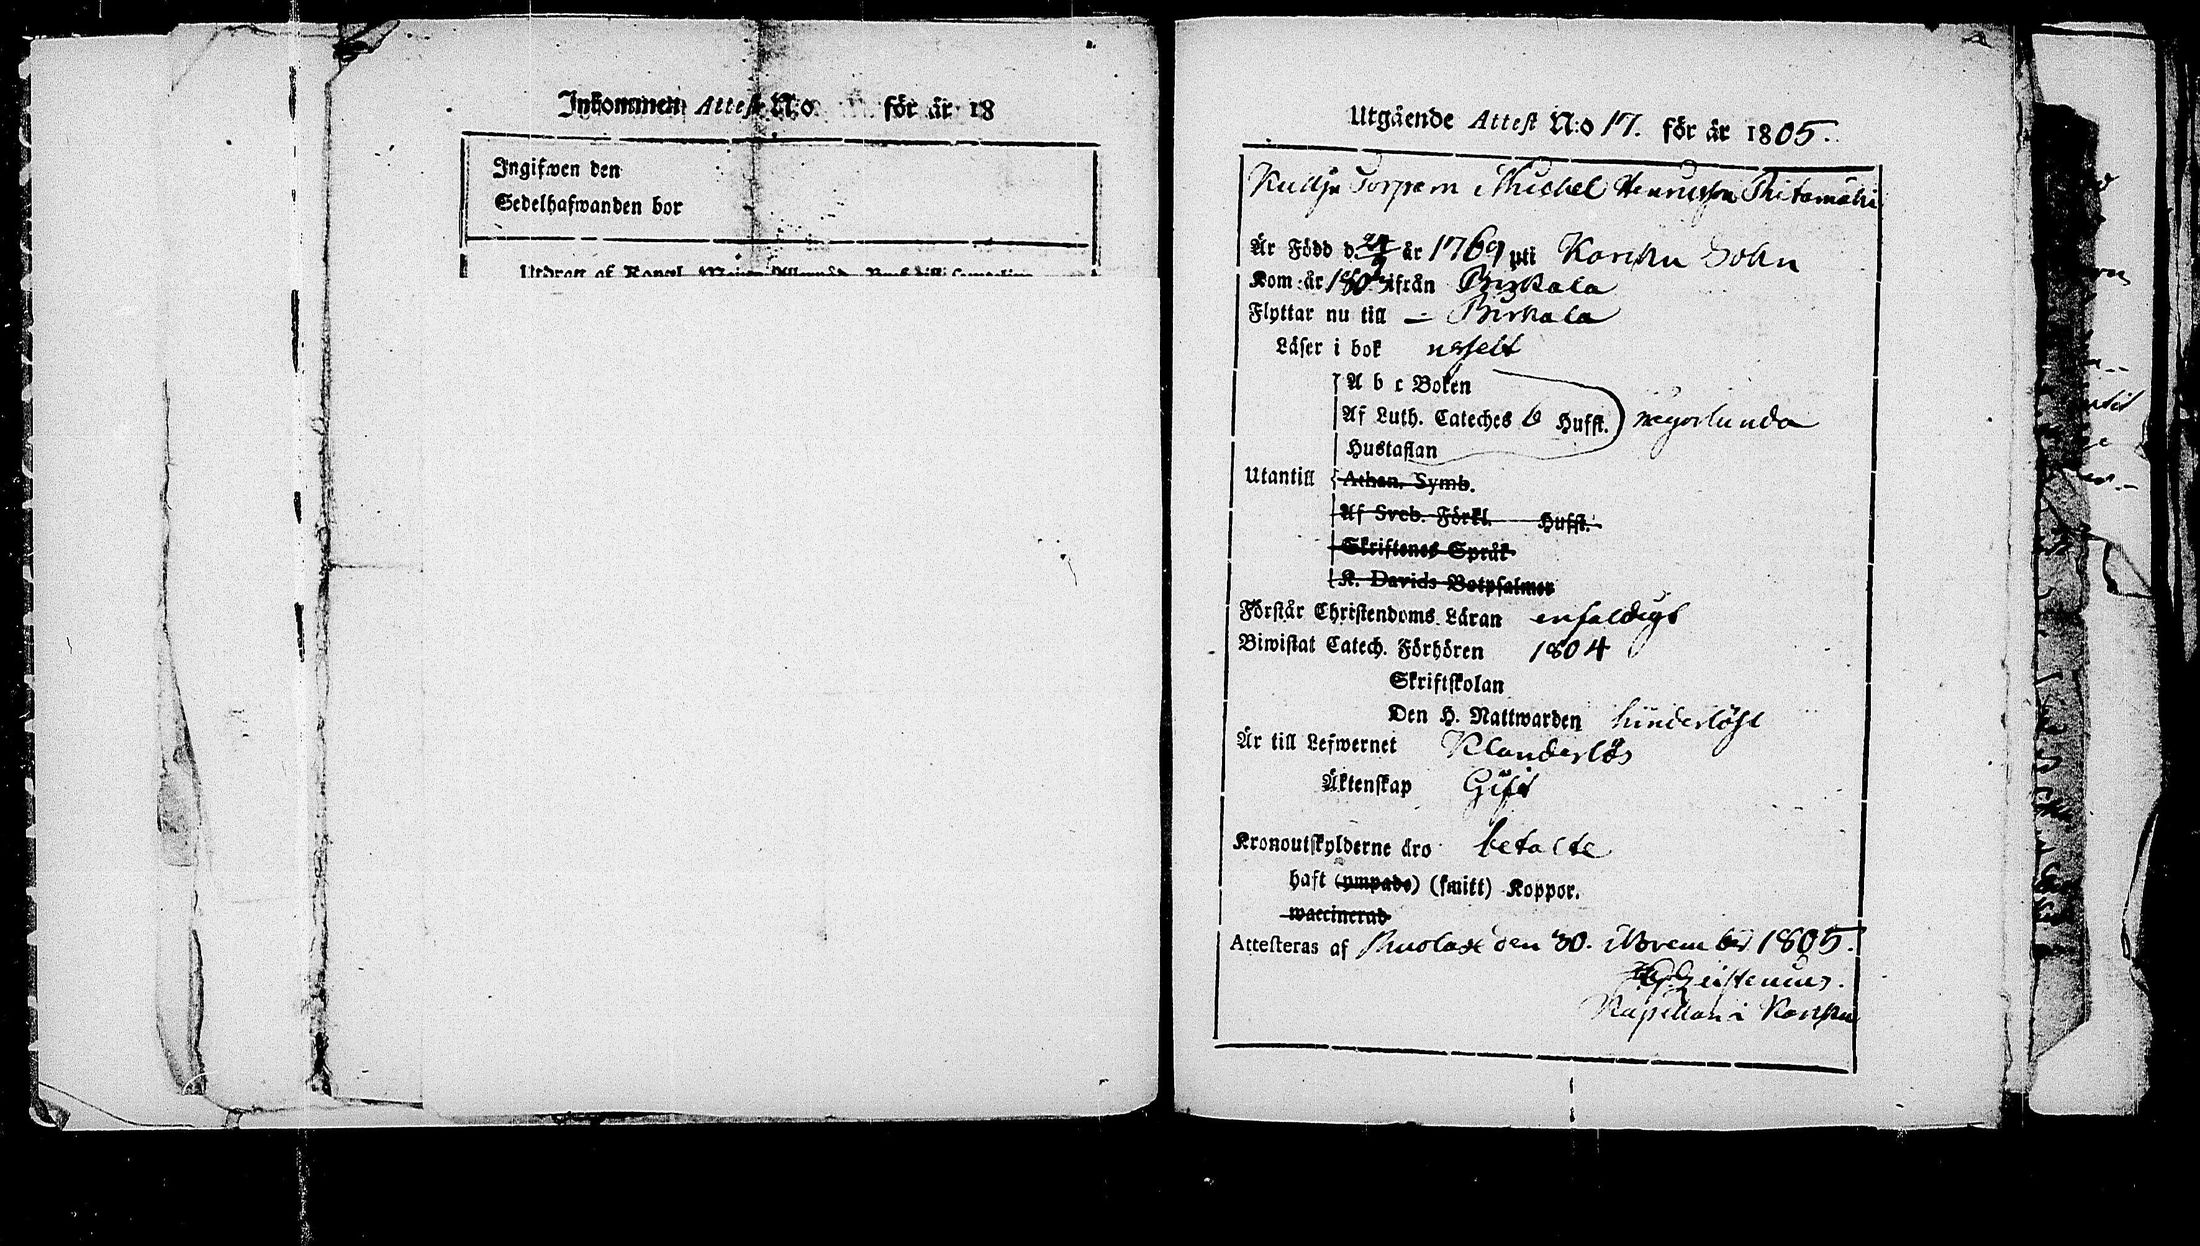 Inkommen Attest N:o för år 18
Ingifwen den
Sedelhafwanden bor
Utdrag af Kongl.
Utgående Attest N:o 17. för år 1805.
Torparn Michel Henricsson
Är Född d. år 1769 uti Karkku Sokn
Kom år 1803 ifrån Birkala
Flyttar nu till – Birkala
Läser i bok
A b c Boken
Af Luth. Cateches 6 Hufst. någorlunda
Hustaflan
Utantill
Athan. Symb.
Af Sveb. Förkl. Hufst.
Skriftenes Språk
K. Davids Botpsalmer
Förstår Christendoms Läran enfaldigt
Biwistat Catech. Förhören 1804
Skriftskolan
Den H. Nattwarden hinderlöst
Är till Lefwernet Klanderlös
Äktenskap Gift
Kronoutskylderne äro betalte
haft (ympade) (smitt) Koppor.
waccinerad
Attesteras af den 30. November 1805.
Kapellan i Karkku